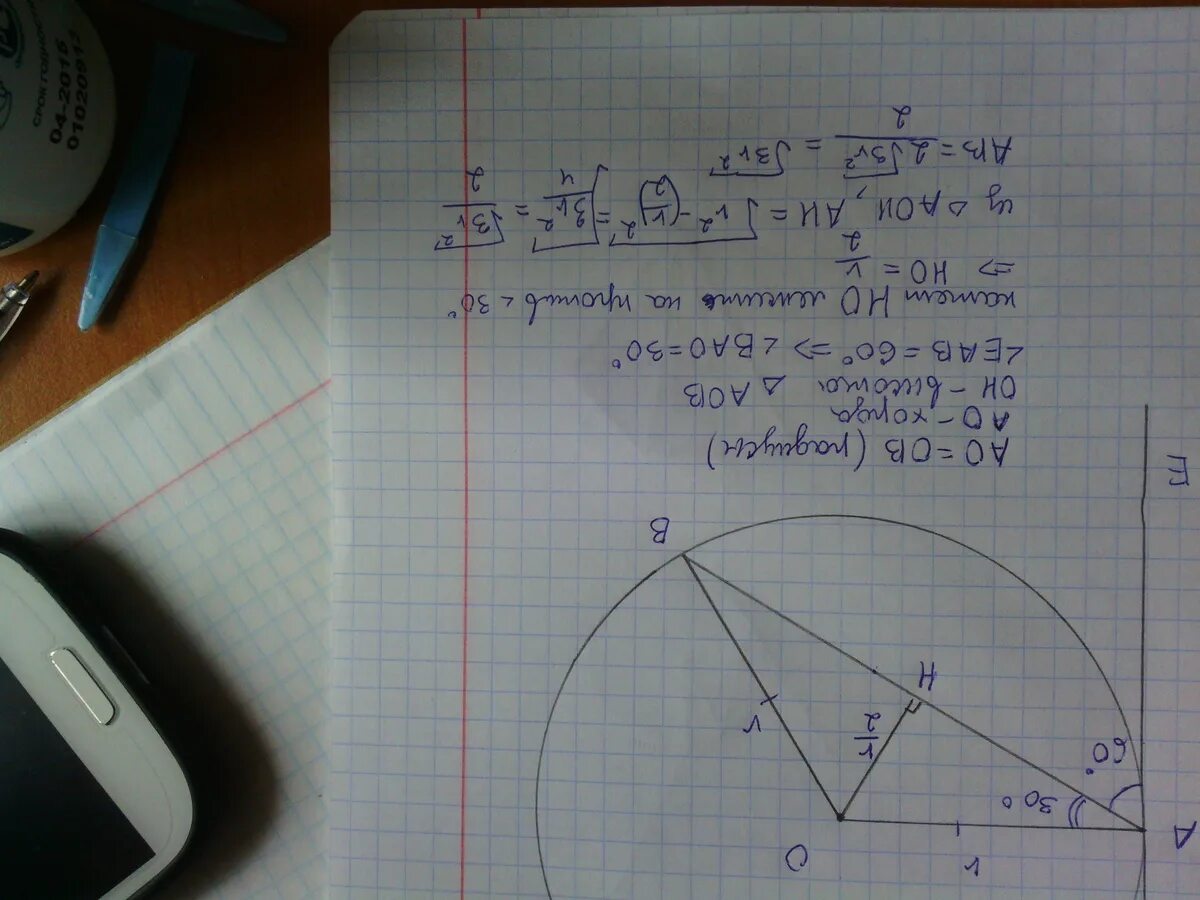 A
r
O
30°
60°
r/2
r
H
B
E
AO = OB (радиусы)
AO - хорда
OH - высота △ AOB
∠EAB = 60° ⇒ ∠BAO = 30°
катет HO лежить на против < 30°
⇒ HO = r/2
из △ AOH, AH = √(r² - (r/2)²) = √(3r²/4) = √(3r²)/2
AB = 2√(3r²)/2 = √(3r²)
СРОК ГОДНОСТИ
04-2015
01020913